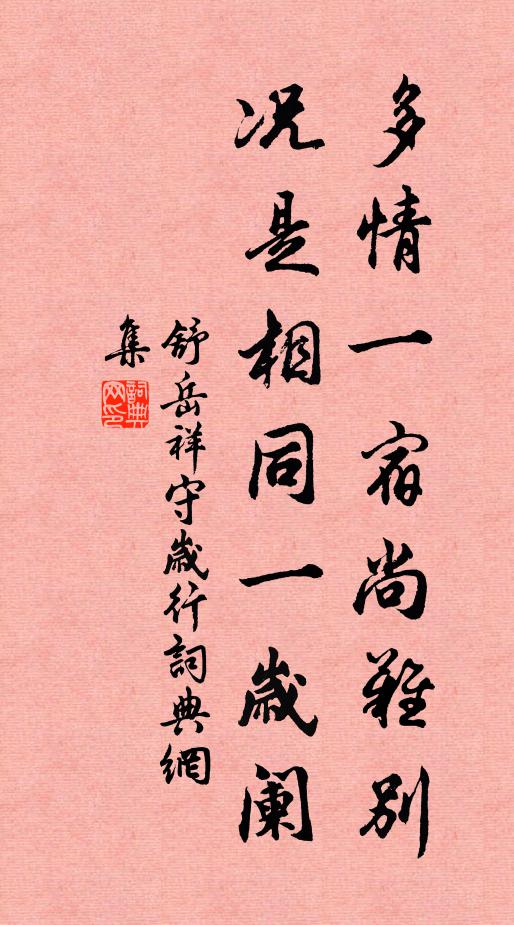 多情一宿尚難别
况是相同一歲阑
舒岳祥守歲行詞典網
集
詞典網印